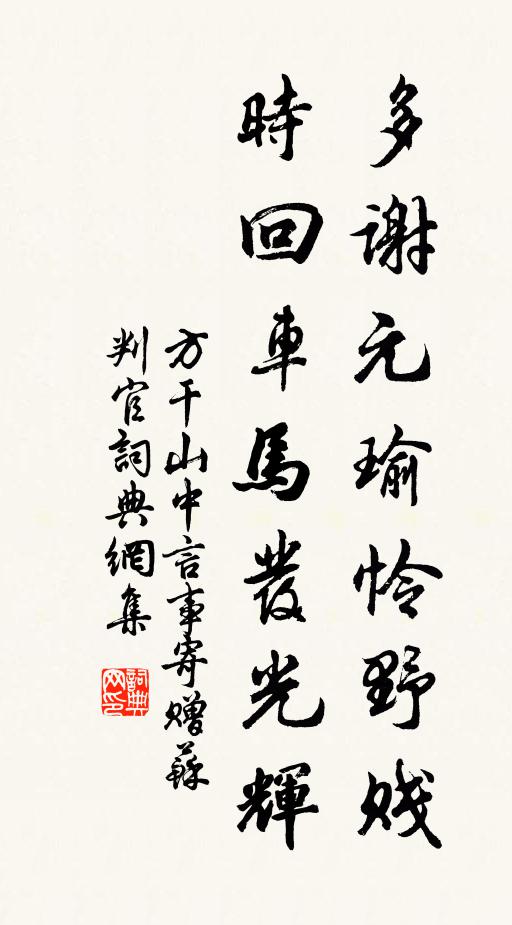 多謝元瑜怜野賎
時回車馬發光輝
方干山中言事寄贈蘇
判官詞典網集
詞典网印